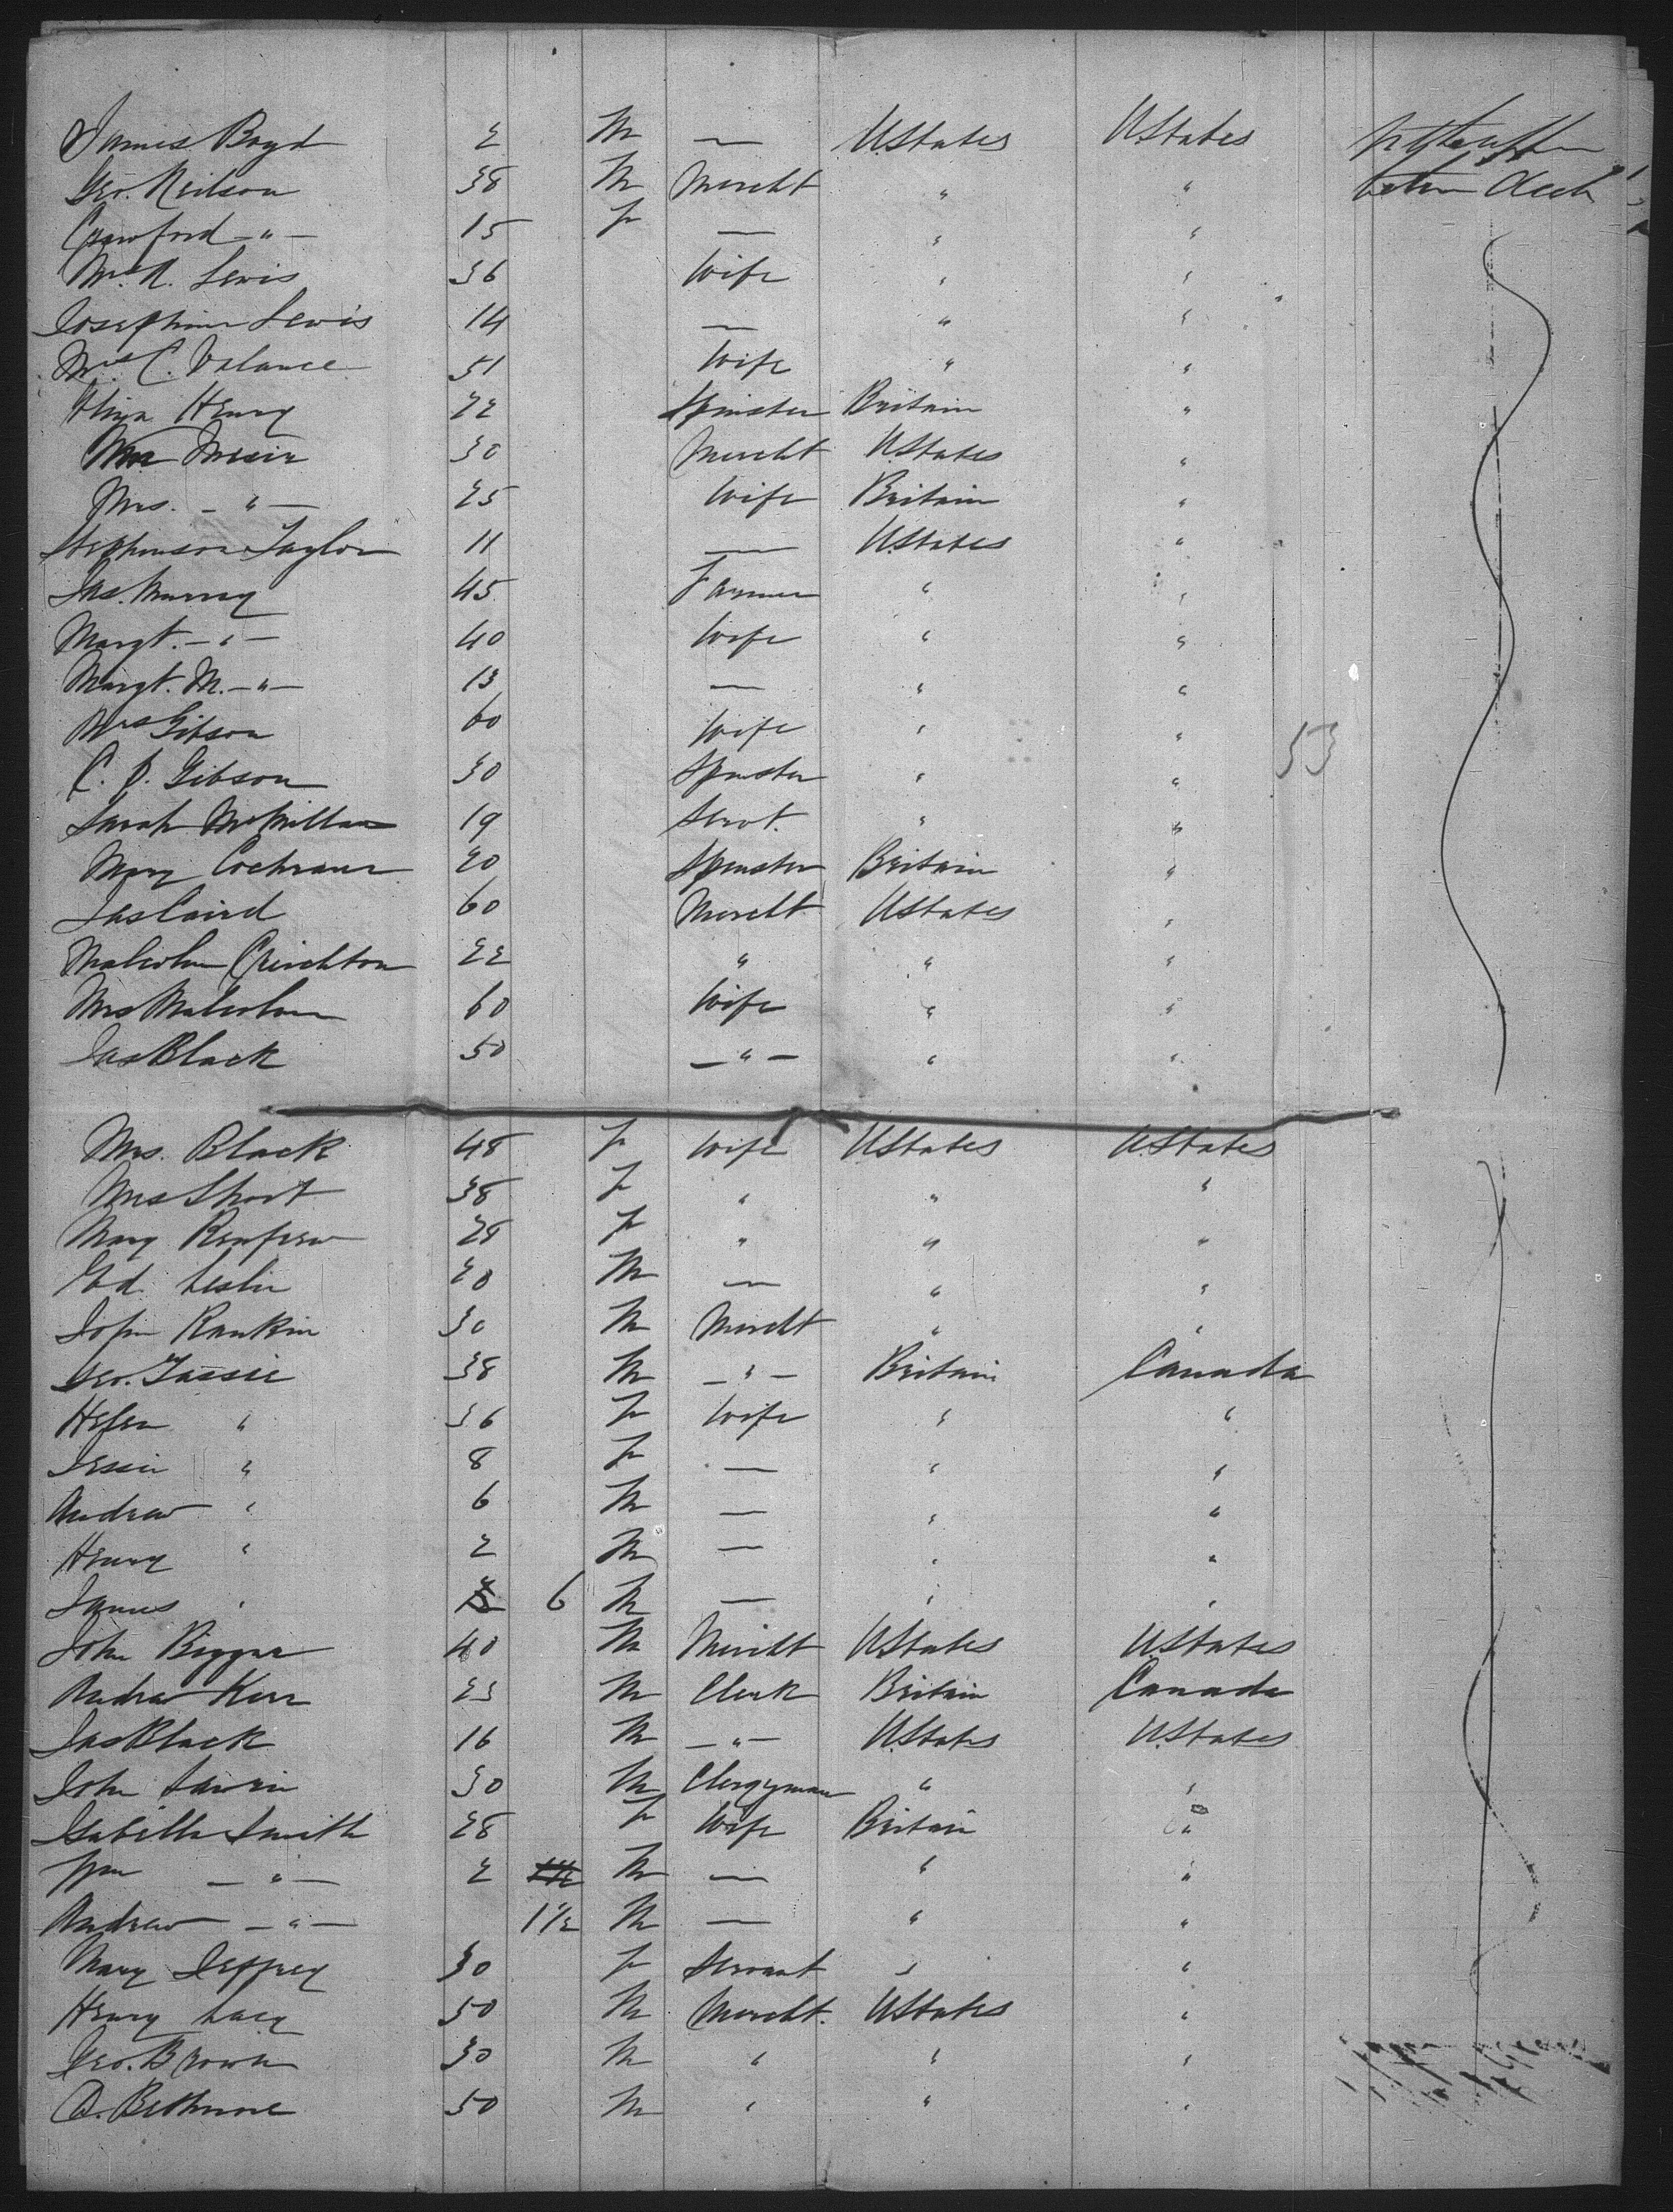 James Boyd 2 M — UStates UStates
Geo. Neilson 38 M Mercht " "
Crawford -"- 15 F — " "
Mrs. R. Lewis 36 Wife " "
Josephine Lewis 14 — " "
Mrs C. Valance 51 Wife " "
Henry 22 Spinster Britain "
30 Mercht UStates "
Mrs. -"- 25 Wife Britain "
Stephenson Taylor 11 — UStates "
Jas. Murray 45 Farmer " "
Margt. -"- 40 Wife " "
Margt. M. -"- 13 — " "
Mrs Gibson 60 Wife " "
C. J. Gibson 30 Spinster " " 53
Sarah McMillan 19 Servt. " "
Mary Cochrane 20 Spinster Britain "
Jas Caird 60 Mercht UStates "
Malcolm Crichton 22 " " "
Mrs Malcolm 60 Wife " "
Jas Black 50 -"- " "
Mrs. Black 48 F Wife UStates UStates
Mrs Short 38 F " " "
Mary Renfrew 28 F " " "
Ed. Leslie 20 M — " "
John Rankin 30 M Mercht " "
Geo. Tassie 38 M -"- Britain Canada
Helen " 36 F Wife " "
Jessie " 8 F — " "
Andrew " 6 M — " "
Henry " 2 M — " "
James " 6 M — " "
John Biggar 40 M Mercht UStates UStates
Andrew Kerr 23 M Clerk Britain Canada
Jas Black 16 M -"- UStates UStates
John 30 M Clergyman " "
Isabella Smith 28 F Wife Britain "
Wm -"- 2 M — " "
Andrew -"- 1½ M — " "
Mary Jeffrey 30 F Servant " "
Henry Lacy 50 M Mercht. UStates "
Geo. Brown 30 M " " "
D. Bethune 50 M " " "